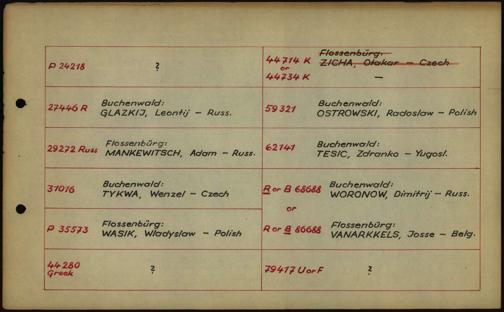 P 24218 ?
44714 K
or
44734 K
Flossenbürg:
ZICHA, Otakar – Czech
—
27446 R
Buchenwald:
GLAZKIJ, Leontij – Russ.
59321
Buchenwald:
OSTROWSKI, Radoslaw – Polish
29272 Russ
Flossenbürg:
MANKEWITSCH, Adam – Russ.
62141
Buchenwald:
TESIC, Zdranko – Yugosl.
31016
Buchenwald:
TYKWA, Wenzel – Czech
R or B 68688
Buchenwald:
WORONOW, Dimitrij – Russ.
or
P 35573
Flossenbürg:
WASIK, Wladyslaw – Polish
R or B 86688
Flossenbürg:
VANARKKELS, Josse – Belg.
44280
Greek
?
79417 U or F ?